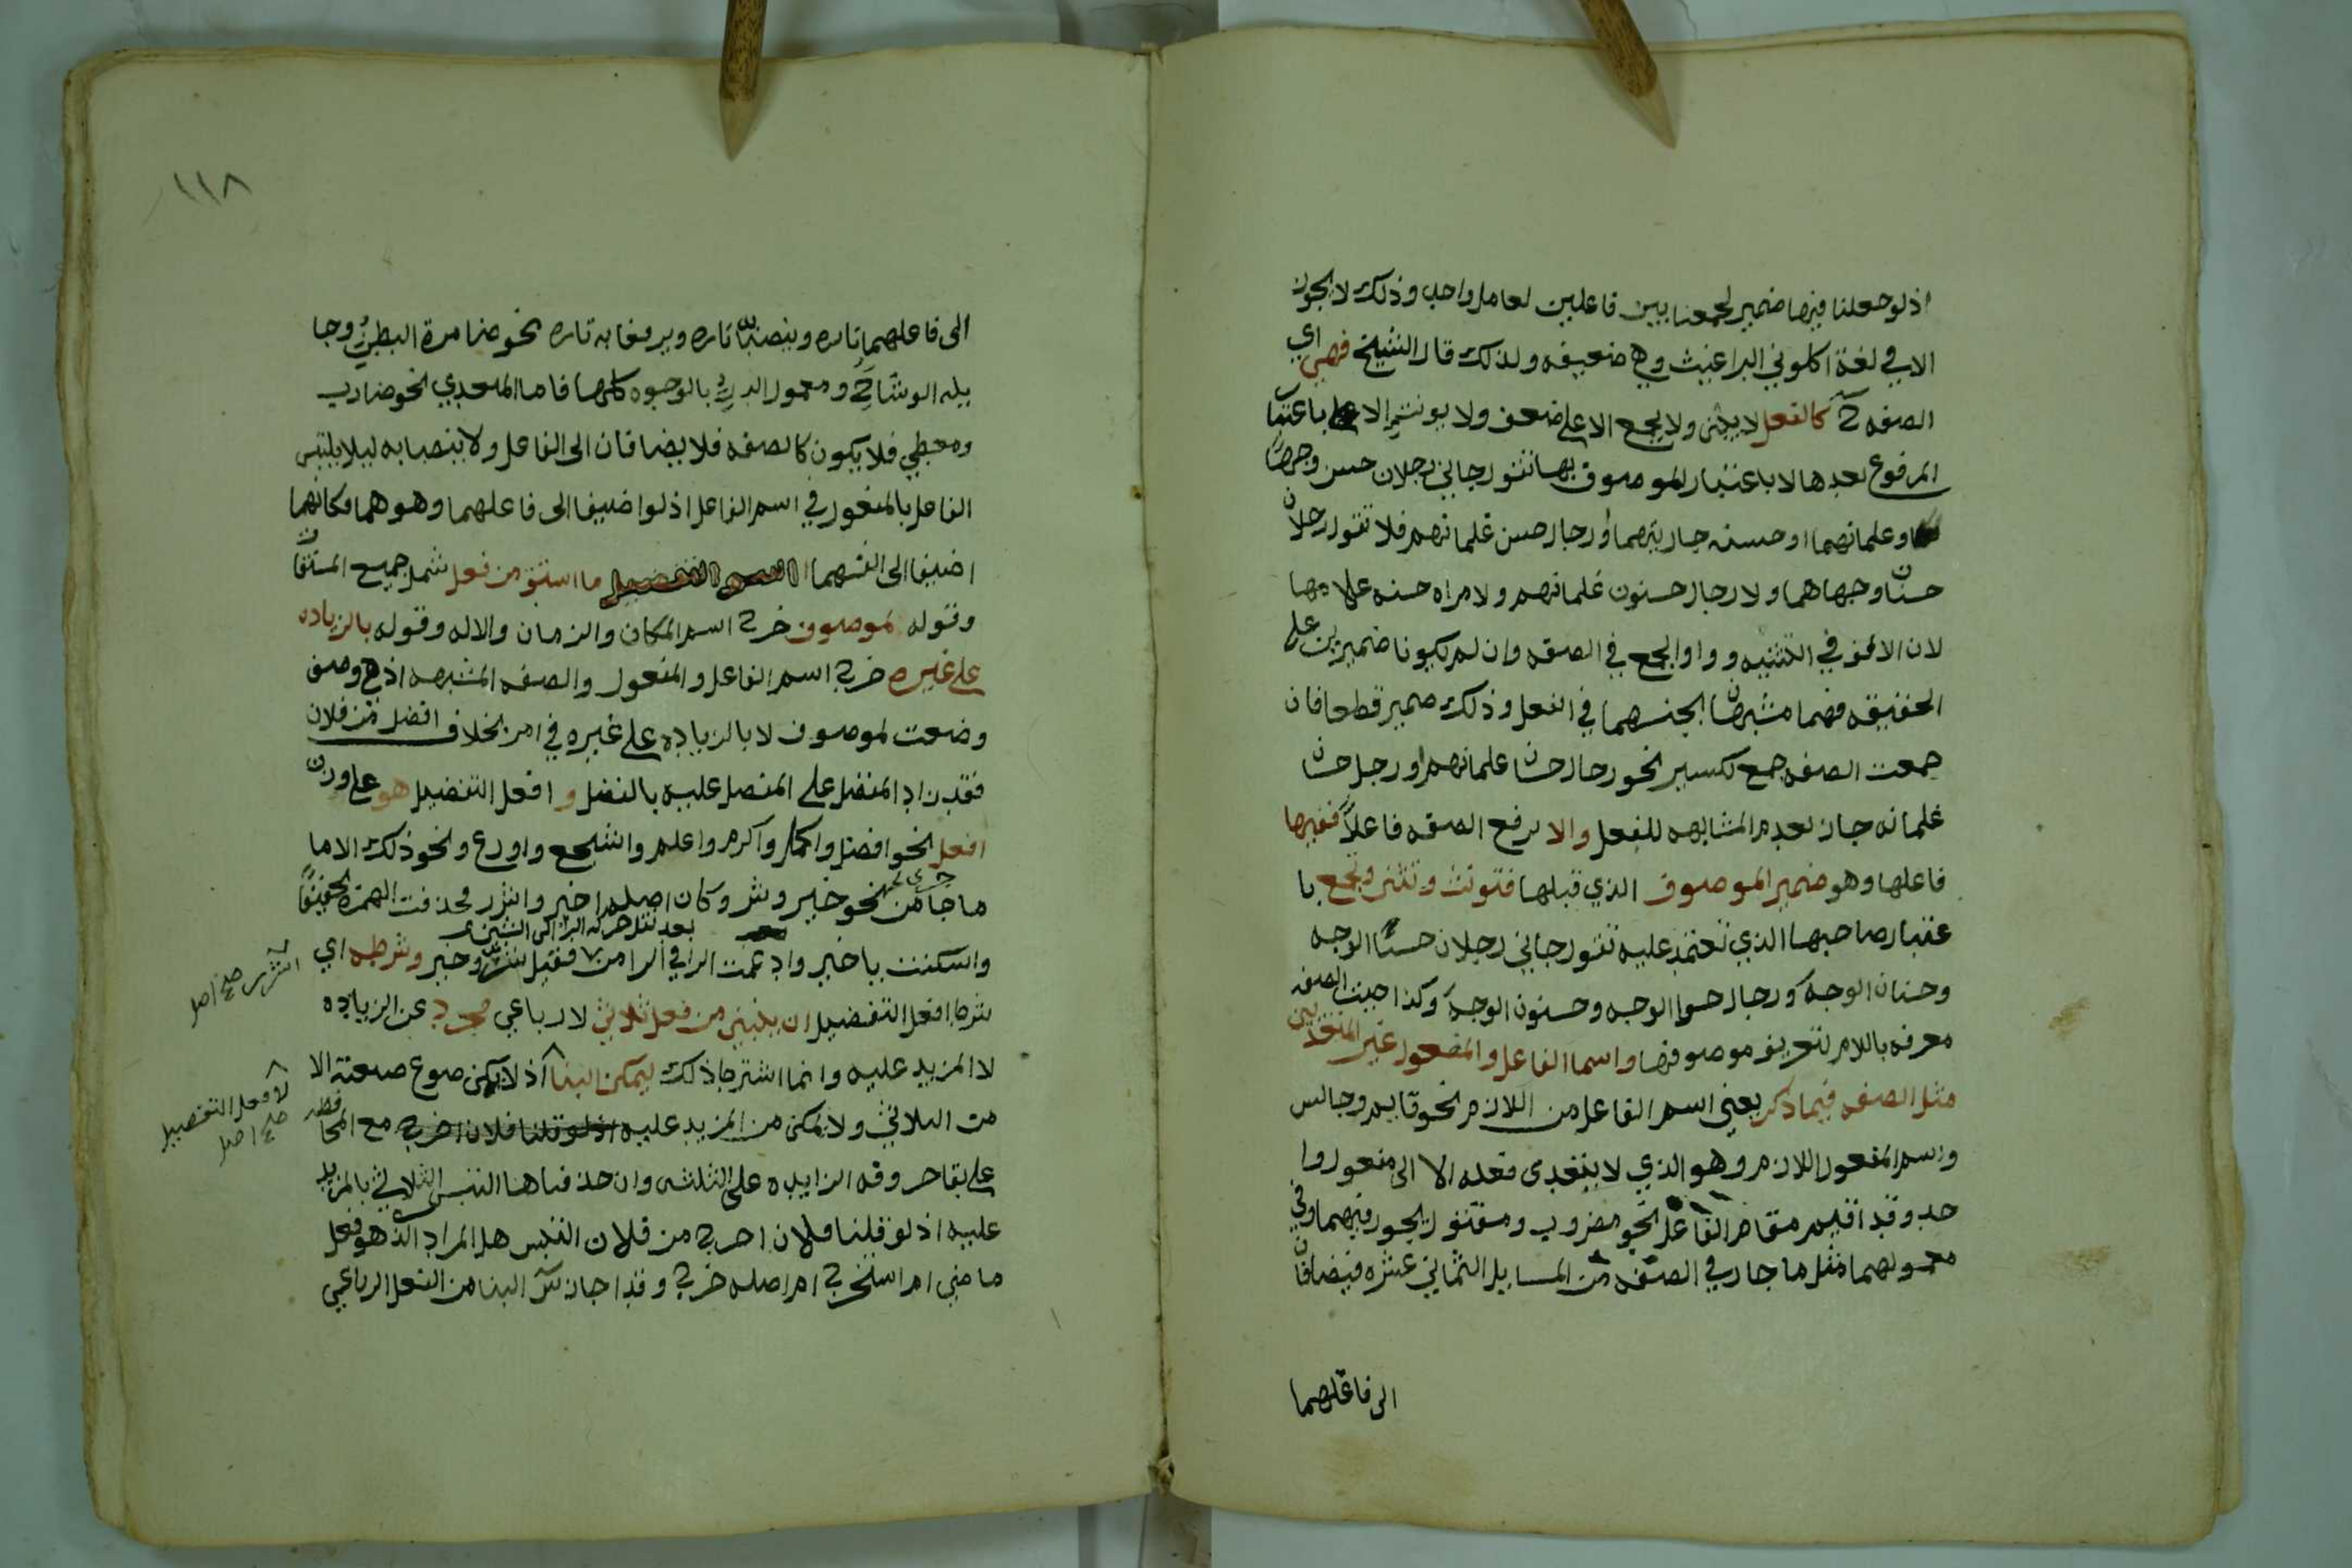 اذ لو جعلنا فيها ضمير لجمعنا بين فاعلين لعامل واحد وذلك لا يجوز
الا في لغة اكلوني البراغيث وهي ضعيفه ولذلك قال الشيخ فهي اي
الصفه كالفعل لا يثنى ولا يجمع الا على ضعف ولا يونث الا باعتبا
المرفوع بعدها لا باعتبار الموصوف بها تقول جاني رجلان حسن وجههما
وغلمانهما او حسنه جاريتهما او رجال حسن غلمانهم فلا تقول رجلان
حسنان وجهاهما ولا رجال حسنون غلمانهم ولا مراه حسنه غلامها
لان الالف في التثنيه و واو الجمع في الصفه وان لم يكونا ضميرين على
الحقيقه فهما مشبهان لجنسهما في الفعل وذلك ضمير قطعا فان
جمعت الصفه جمع تكسير نحو رجال حسان غلمانهم او رجل حسان
غلمانه جاز لعدم المشابهه للفعل والا يرفع الصفه فاعلا ففيها
فاعلها وهو ضمير الموصوف الذي قبلها فتونث وتثنى وتجمع با
عتبار صاحبها الذي تعتمد عليه تقول جاني رجلان حسنا الوجه
وحسنان الوجه ورجال حسنوا الوجه وحسنون الوجه وكذا حيث الصفه
معرفه باللام لتعريف موصوفها واسما الفاعل والمفعول غير المتعديين
مثل الصفه فيما ذكر يعني اسم الفاعل من اللازم نحو قايم وجالس
واسم المفعول اللازم وهو الذي لا يتعدى فعله الا الى مفعول وا
حد وقد اقيم مقام الفاعل نحو مضروب ومقتول يجوز فيهما وفي
معمولهما مثل ما جاز في الصفه من المسايل الثماني عشره فيضافان
الى فاعلهما
١١٨
الى فاعلهما تاره وينصبانه تاره ويرفعانه تاره نحو ضامرة البطن وجا
يله الوشاح ومعمور الدار بالوجوه كلها فاما المتعدي نحو ضارب
ومعطي فلا يكون كالصفه فلا يضافان الى الفاعل ولا ينصبانه ليلا يلتبس
الفاعل بالمفعول في اسم الفاعل اذ لو اضيفا الى فاعلهما وهو هما فكانهما
اضيفا الى انفسهما اسم التفضيل ما اشتق من فعل شمل جميع المشتقات
وقوله لموصوف خرج اسم المكان والزمان والاله وقوله بالزياده
على غيره خرج اسم الفاعل والمفعول والصفه المشبهه اذ هي وصف
وضعت لموصوف لا بالزياده على غيره في امر بخلاف افضل من فلان
فقد زاد المفضل على المفضل عليه بالفضل و افعل التفضيل هو على وزن
افعل نحو افضل واكمل واكرم واعلم واشجع واورع ونحو ذلك الا ما
ما جا من نحو خير وشر وكان اصله اخير واشرر فحذفت الهمزه تخفيفا
بعد نقل حركه الرا الى الشين
واسكنت يا خير وادغمت الرا في الرا من فقيل شر وخير وشرطه اي
شرط افعل التفضيل ان يبنى من فعل ثلاثي لا رباعي مجرد عن الزياده
لا المزيد عليه وانما اشترط ذلك ليمكن البنا اذ لا يمكن صوغ صيغته الا
من الثلاثي ولا يمكن من المزيد عليه اذ لو قلنا فلان اخرج مع المحا فظه
على بقا حروفه الزايده على الثلثه وان حذفناها التبس الثلاثي بالمزيد
عليه اذ لو قلنا فلان اخرج من فلان التبس هل المراد الذي هو فعل
ماضي ام استخرج ام اصله خرج وقد اجاز س البنا من الفعل الرباعي
اشرر صح اصل
لافعل التفضيل
صح اصل